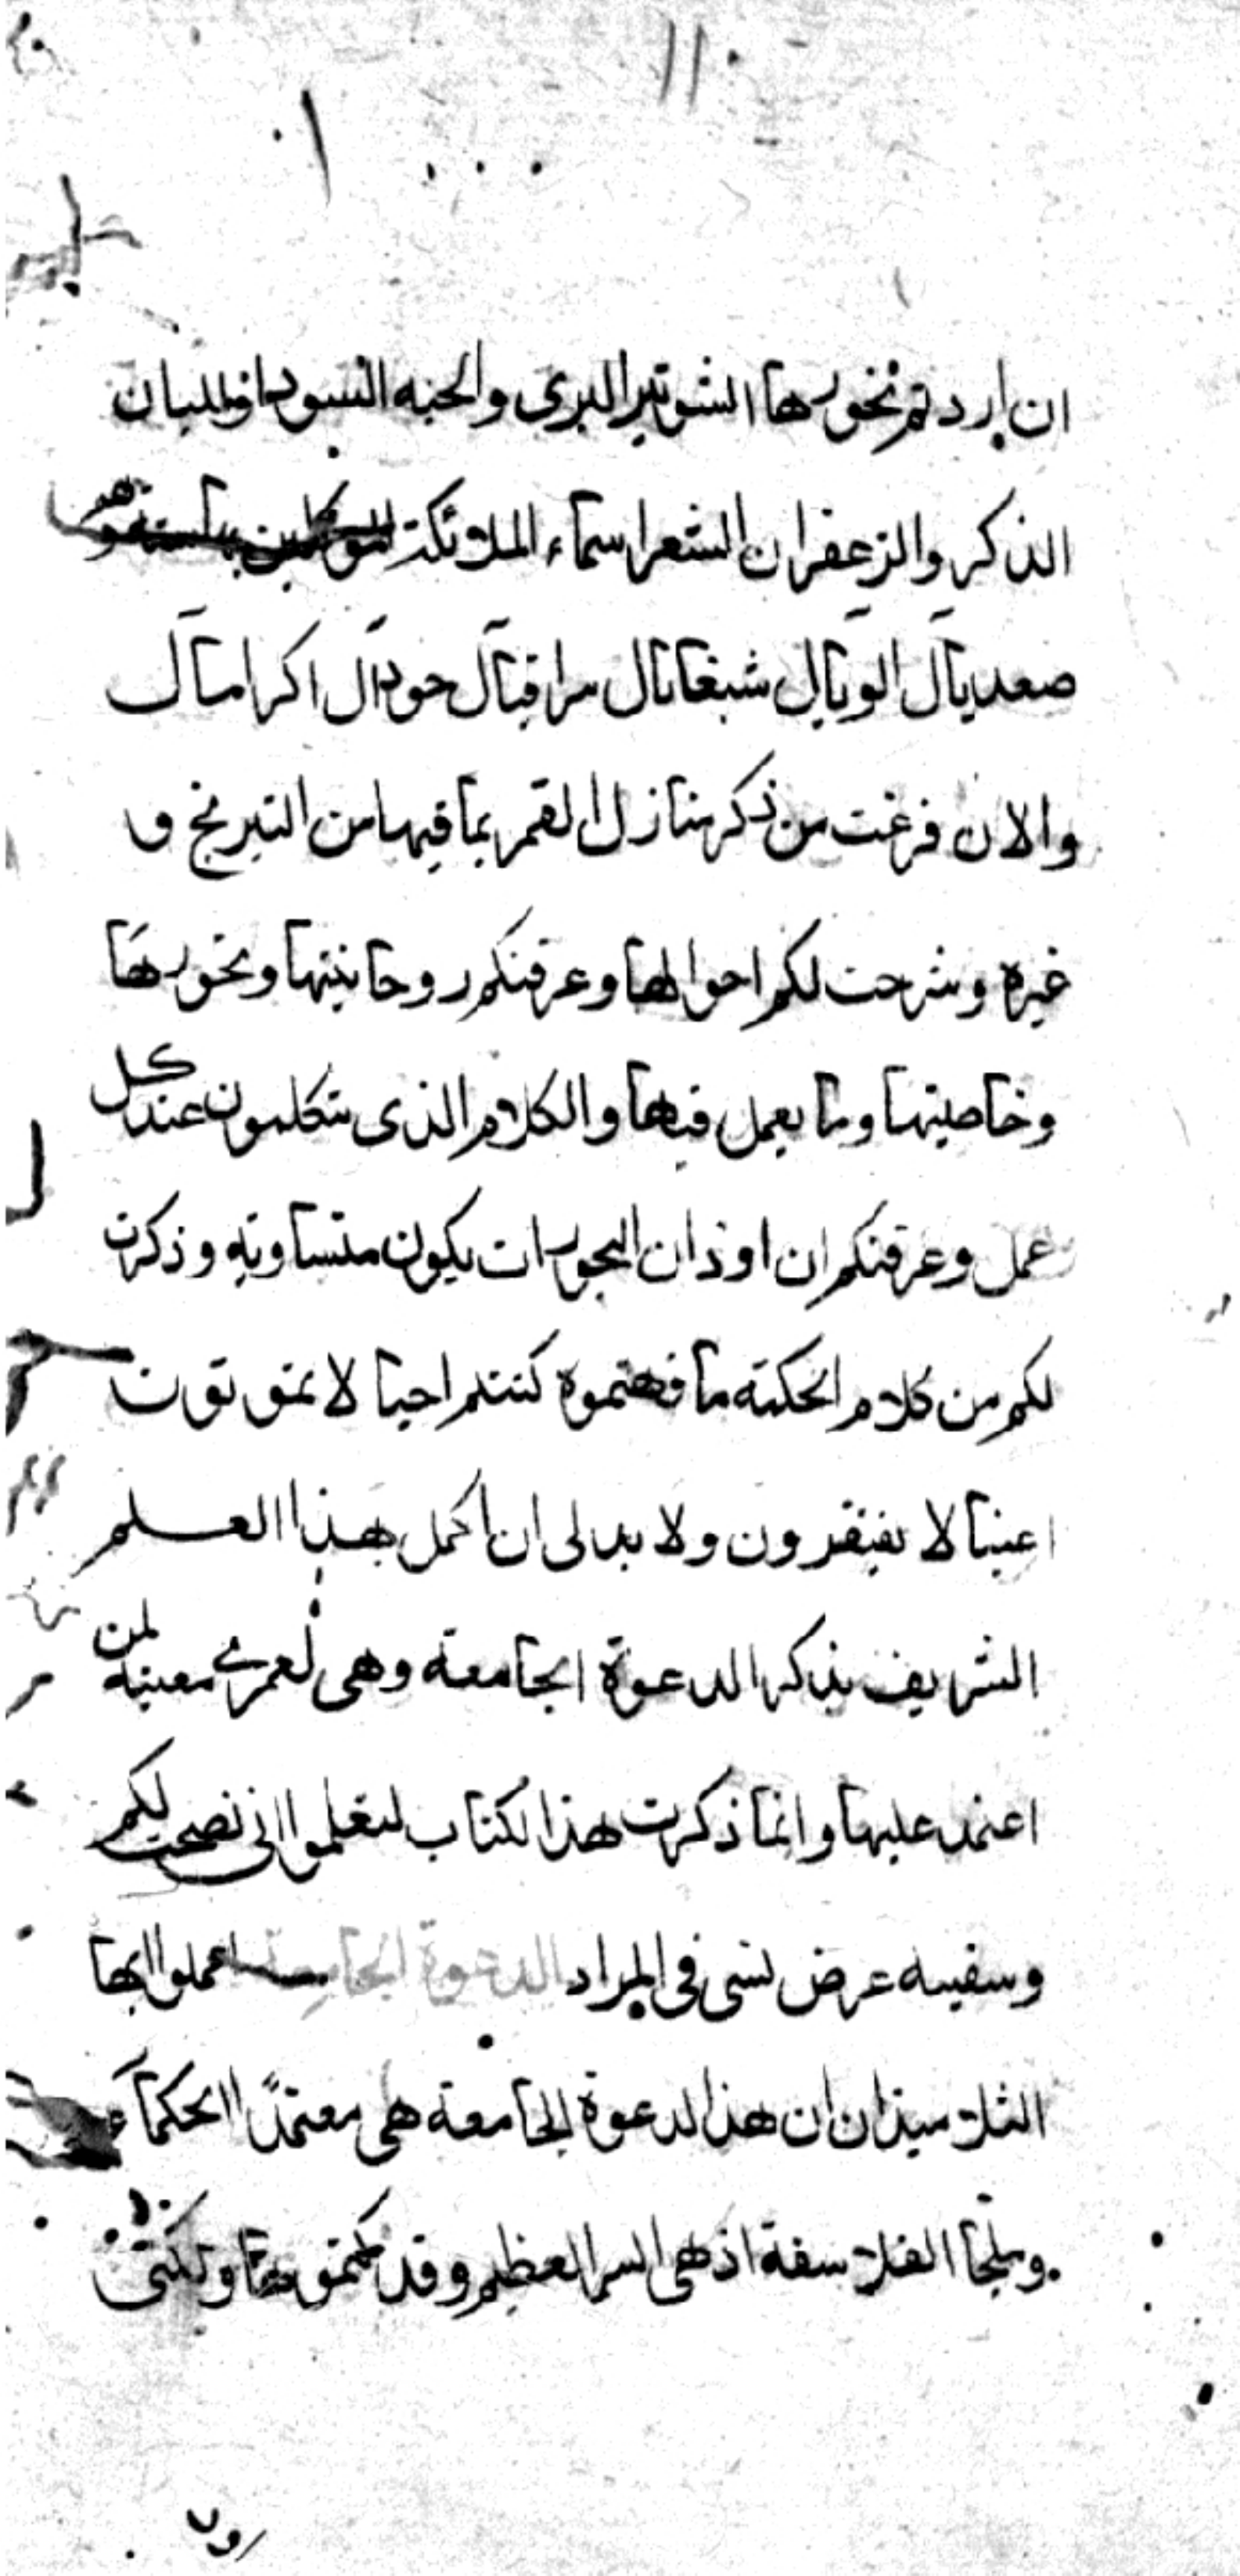 ان اردتم بخورها الشونيز البري والحبه السودا واللبان
الذكر والزعفران الشعر اسماء الملائكة
صعديائل الويائل شبغائال مرافيائل حودائل اكراميائل
والان فرغت من ذكر منازل القمر بما فيها من النيرنج و
غيره وشرحت لكم احوالها وعرفتكم روحانيتها وبخورها
وخاصيتها وما يعمل فيها والكلام الذى يتكلمون عند كل
عمل وعرفتكم ان اوزان البخورات يكون متساويه وذكرت
لكم من كلام الحكمة ما فهتموه كنتم احيا لا تموتون
اغنيا لا يفتقرون ولا بد لى ان اكمل هذا العلم
الشريف بذكر الدعوة الجامعة وهى لعمرى معينه لمن
اعتمد عليها وانما ذكرت هذا لكتاب لتعلموا انى نصحت لكم
عرض فى المراد الدعوة الجامعة اعملوا ايها
التلاميذ ان ان هذا لدعوة الجامعة هى معتمد الحكماء
وملجا الفلاسفة اذ هى السر العظيم وقد